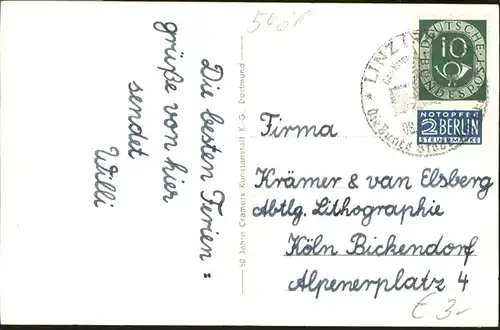 Die besten Ferien =
grüße von hier
sendet
Willi
50 Jahre Cramers Kunstanstalt K.-G. Dortmund
540
LINZ (
DEUTSCHE
BUNDESPOST
10
NOTOPFER
2 BERLIN
STEUERMARKE
Firma
Krämer & van Elsberg
Abtlg. Lithographie
Köln Bickendorf
Alpenerplatz 4
€ 3-